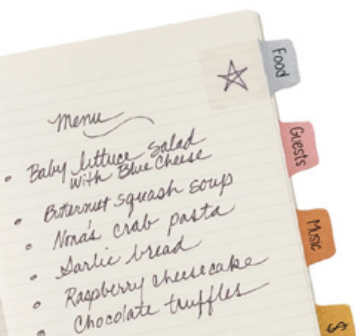 Food
Guests
Music
$
Menu
• Baby lettuce salad
with Blue Cheese
• Butternut squash soup
• Nona's crab pasta
• Garlic bread
• Raspberry cheesecake
• Chocolate truffles